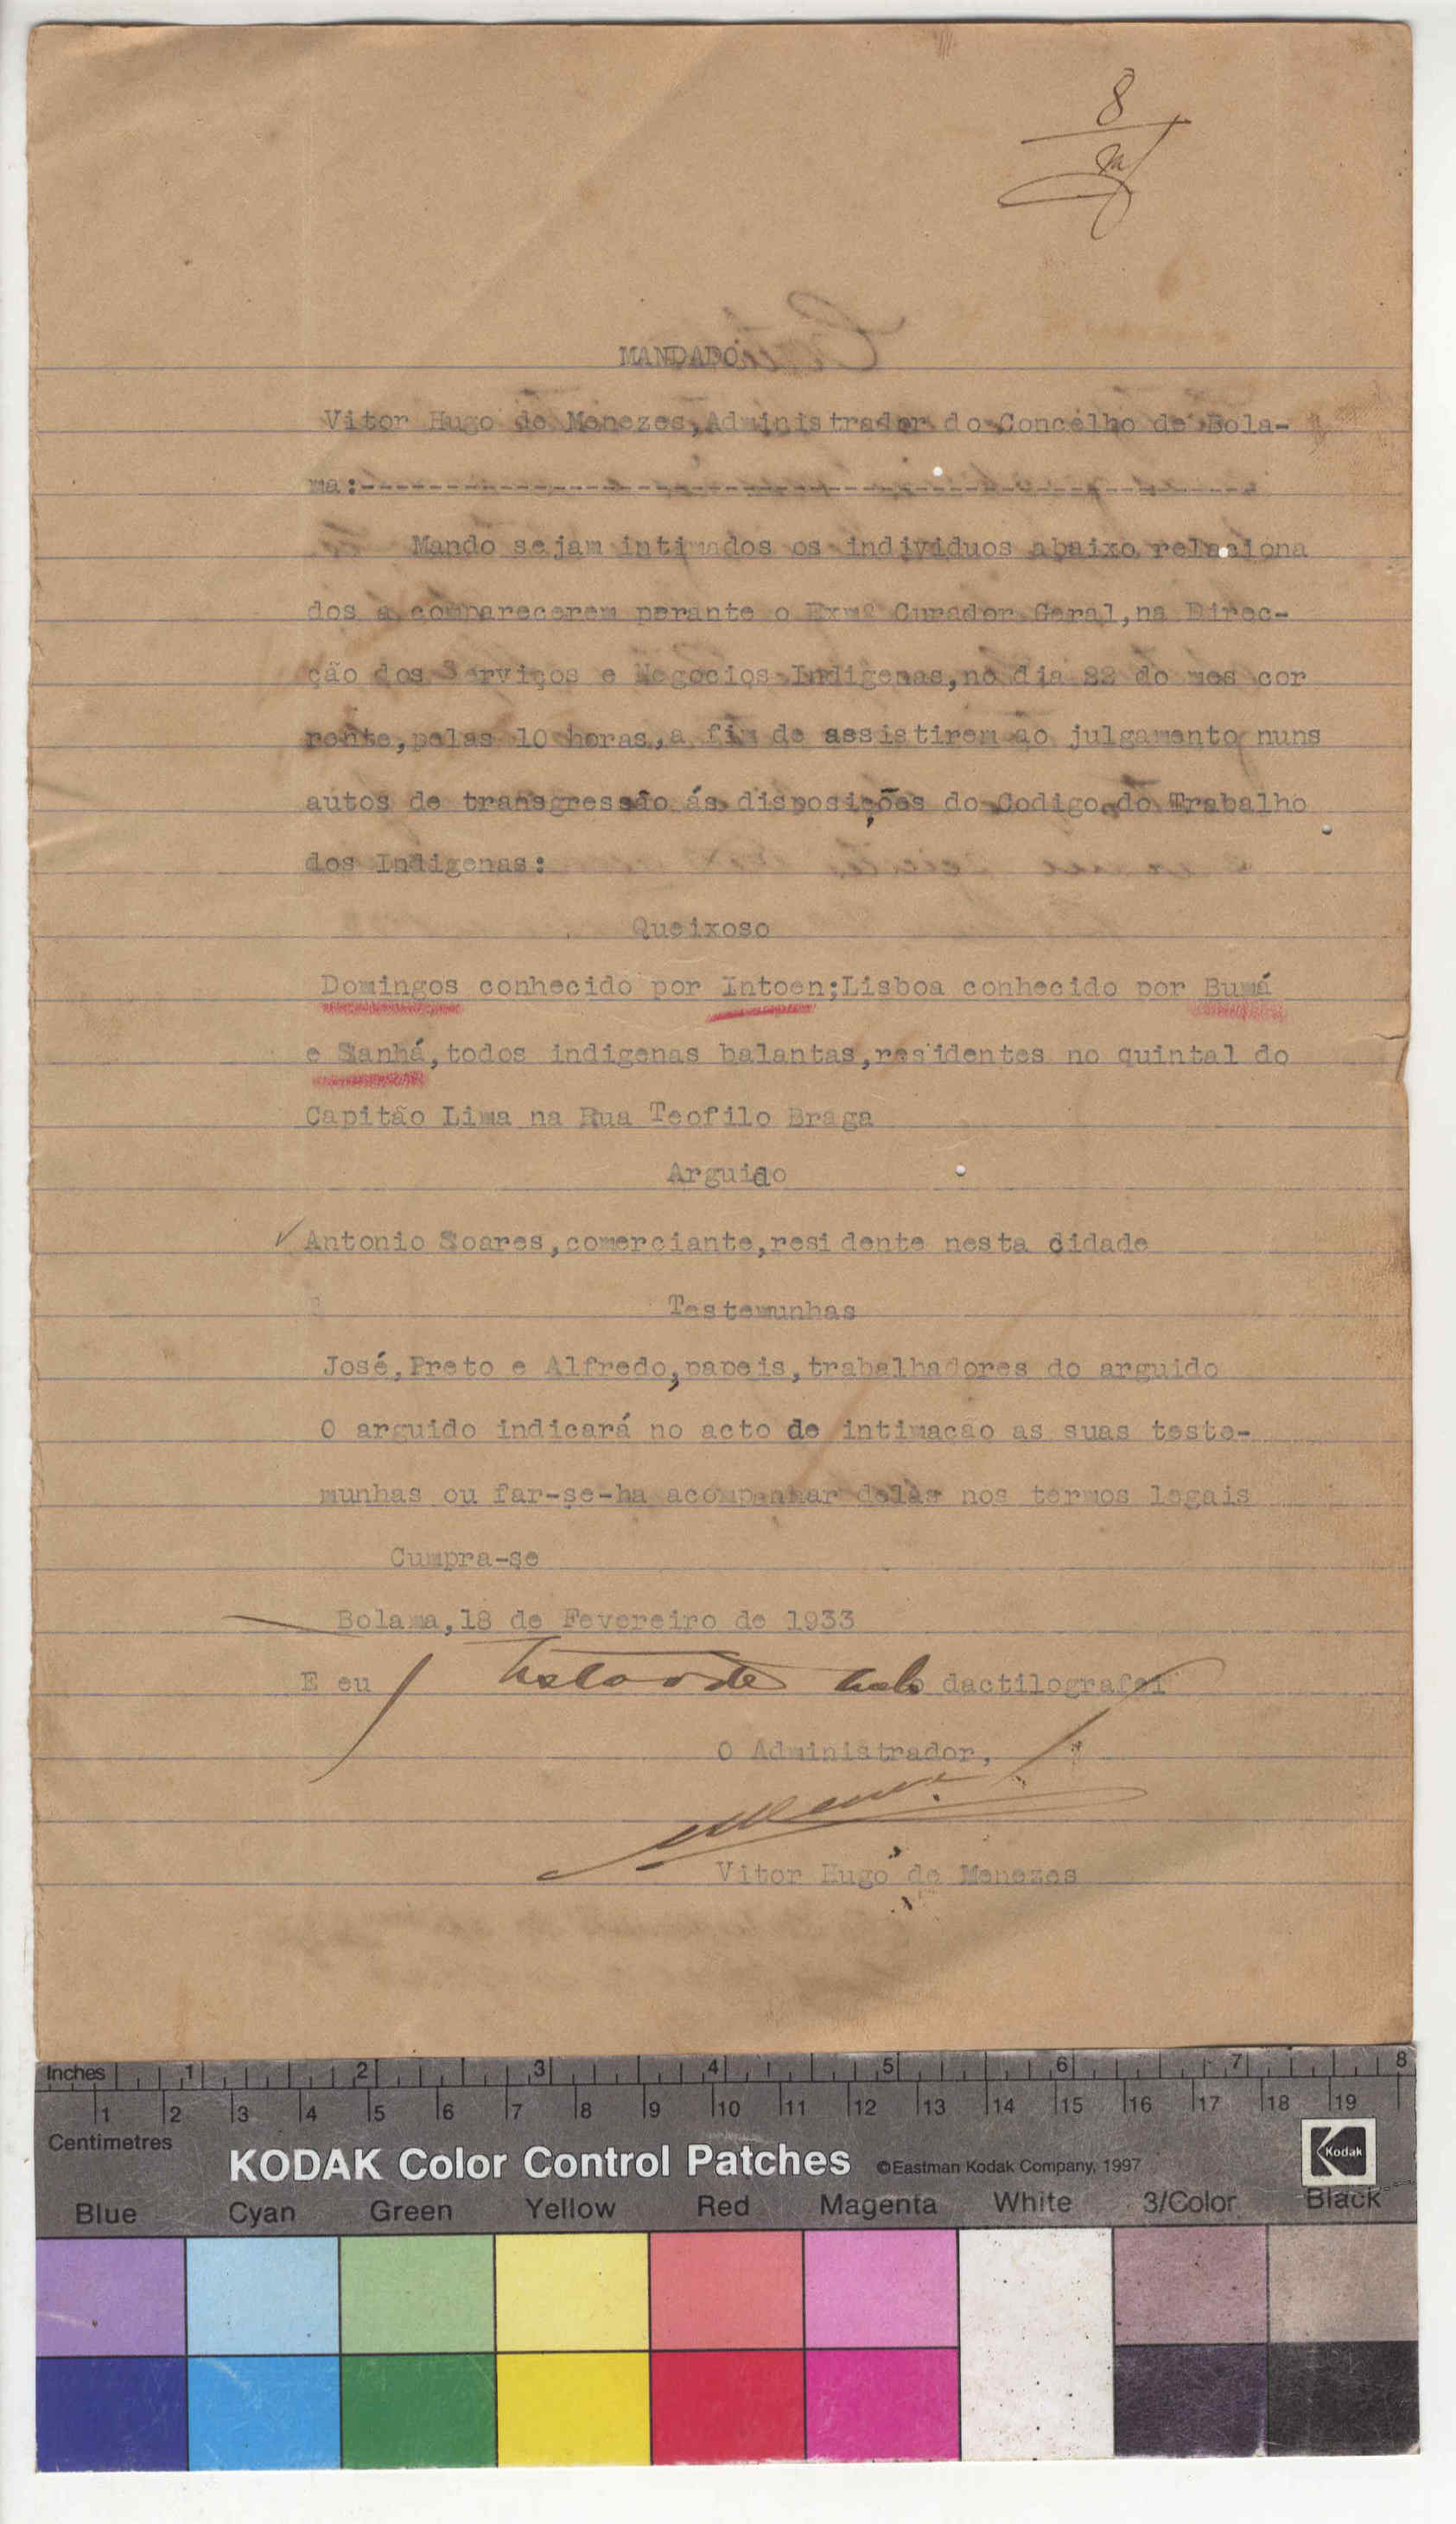 8
MANDADO
Vitor Hugo de Menezes,Administrador do Concelho de Bola-
ma:----------------------------------------------------------------
Mando sejam intimados os individuos abaixo relaciona
dos a comparecerem perante o Exmº Curador Geral,na Direc-
ção dos Serviços e Negocios Indigenas,no dia 22 do mes cor
rente,pelas 10 horas,a fim de assistirem ao julgamento nuns
autos de transgressão ás disposições do Codigo do Trabalho
dos Indigenas:
Queixoso
Domingos conhecido por Intoen;Lisboa conhecido por Bumá
e Sanhá,todos indigenas balantas,residentes no quintal do
Capitão Lima na Rua Teofilo Braga
Arguido
Antonio Soares,comerciante,residente nesta cidade
Testemunhas
José,Preto e Alfredo,papeis,trabalhadores do arguido
O arguido indicará no acto de intimação as suas teste-
munhas ou far-se-ha acompanhar delas nos termos legais
Cumpra-se
Bolama,18 de Fevereiro de 1933
E eu o dactilografei
O Administrador,
Vitor Hugo de Menezes
Inches 1 2 3 4 5 6 7 8
1 2 3 4 5 6 7 8 9 10 11 12 13 14 15 16 17 18 19
Centimetres
KODAK Color Control Patches ©Eastman Kodak Company, 1997 Kodak
Blue Cyan Green Yellow Red Magenta White 3/Color Black